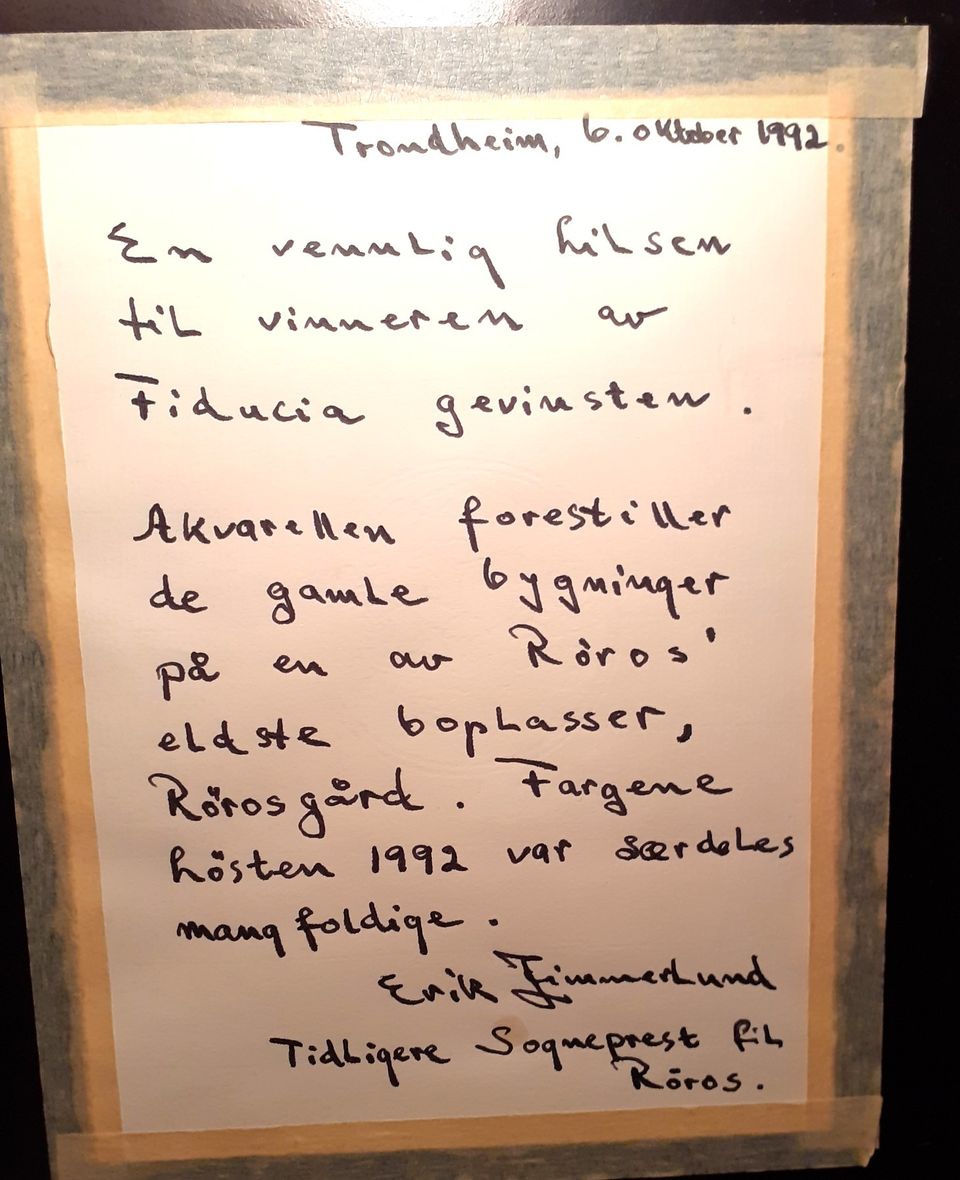 Trondheim, 6. oktober 1992.
En vennlig hilsen
til vinneren av
Fiducia gevinsten.
Akvarellen forestiller
de gamle bygninger
på en av Röros'
eldste boplasser,
Rörosgård. Fargene
hösten 1992 var særdeles
mangfoldige.
Erik Zimmerlund
Tidligere Sogneprest til
Röros.